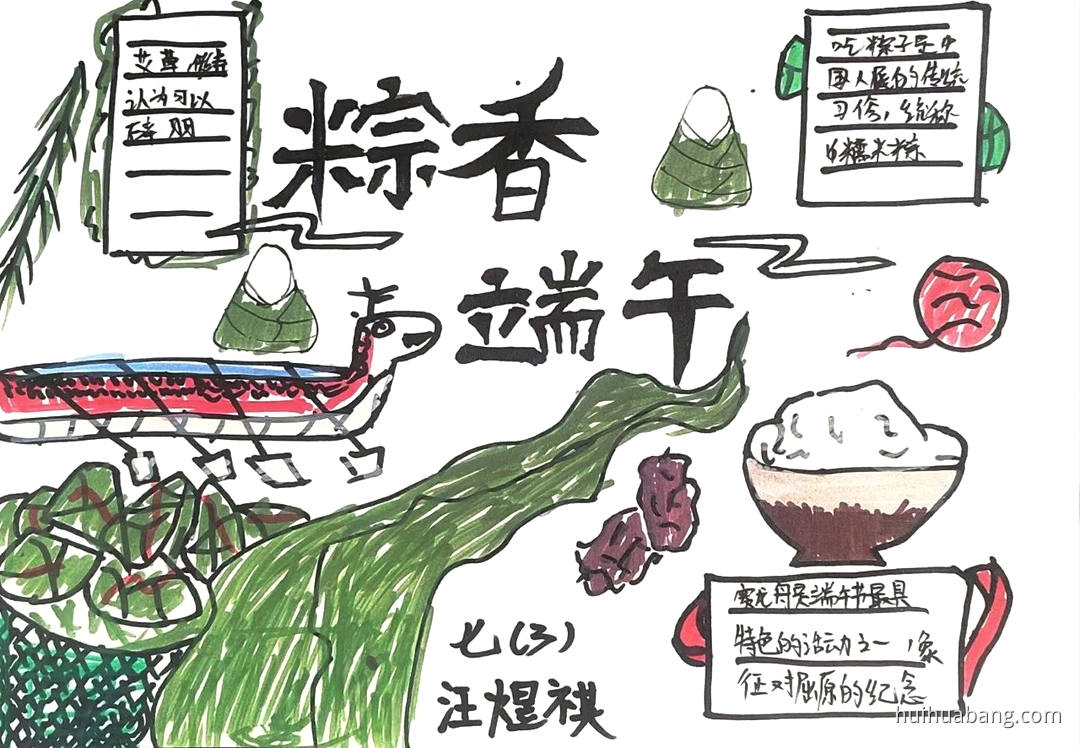 艾草
认为可以
粽香
端午
吃粽子是中
国人民的传统
习俗，
糯米粽
赛龙舟是端午节最具
特色的活动之一，象
征对屈原的纪念
七(3)
汪煜祺
huihuabang.com